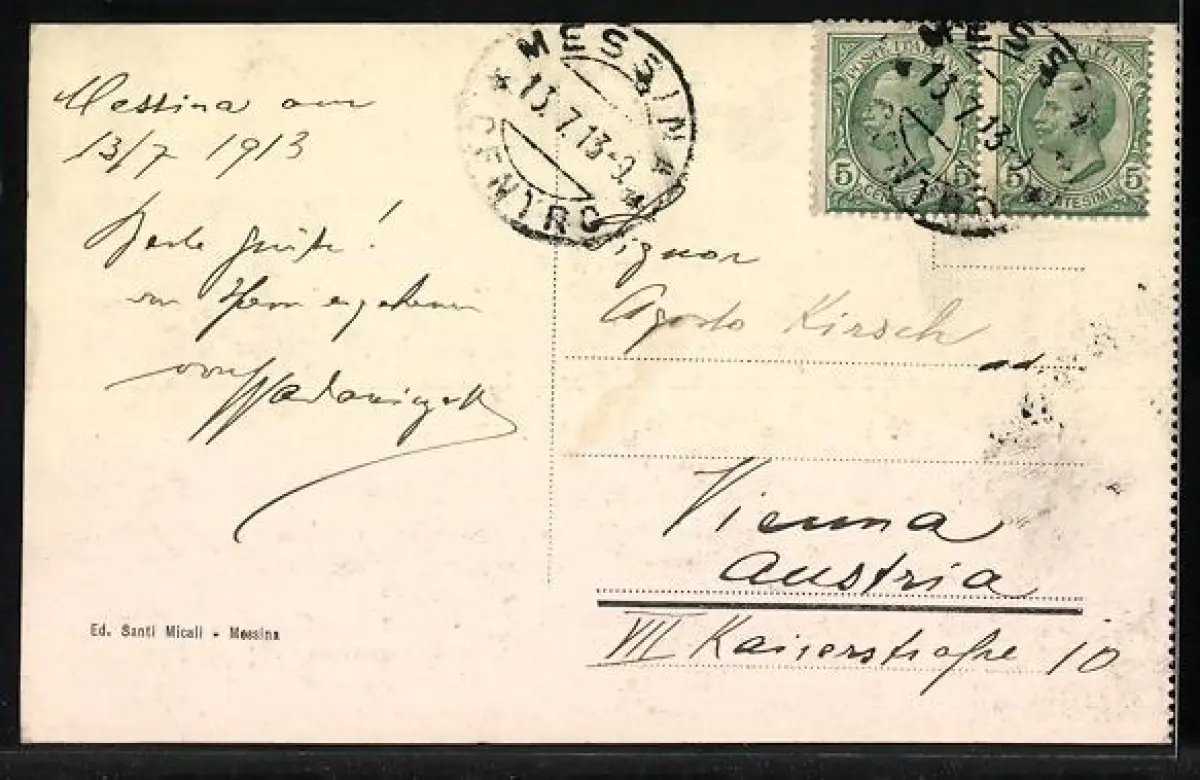 Messina am
13/7 1913
Beste Grüße!
von Ihrem ergebenen
MESSINA
* 13.7.13-9. *
CENTRO
POSTE ITALIANE
5 CENTESIMI 5
MESSINA
* 13.7.13-9. *
CENTRO
POSTE ITALIANE
5 CENTESIMI 5
Signor
Agosto Kirsch
Vienna
Austria
VII Kaiserstraße 10
Ed. Santi Micali - Messina